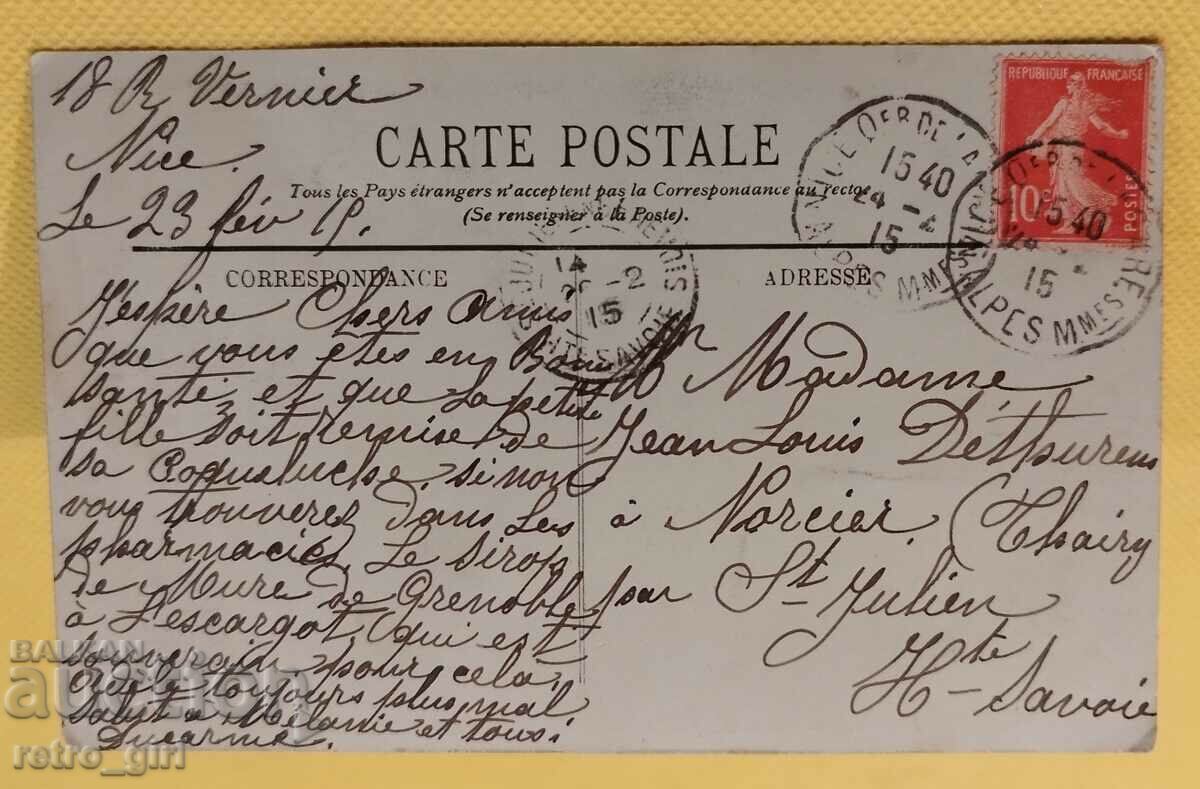 18 R Vernier
Nice.
Le 23 fév 15.
CARTE POSTALE
Tous les Pays étrangers n'acceptent pas la Correspondance au recto
(Se renseigner à la Poste).
CORRESPONDANCE
J'espère Chers Amis
que vous êtes en Bonne
santé et que la petite
fille soit remise de
sa Coqueluche. si non
vous trouverez dans les
pharmacies, Le sirop
de Mure de Grenoble
à L'escargot, qui est
souverain pour cela.
toujours plus mal
Salut à Mélanie et tous.
Ducarme.
ADRESSE
Madame
Jean Louis Déthurens
à Norcier, (Thairy
par St Julien
Hte Savoie
REPUBLIQUE FRANÇAISE
10
POSTES
15 40
24 - 2
15
ALPES MMES
15 40
24
15
ALPES MMES
14
- 2
15
HTE SAVOIE
BALKAN
auction
retro_girl